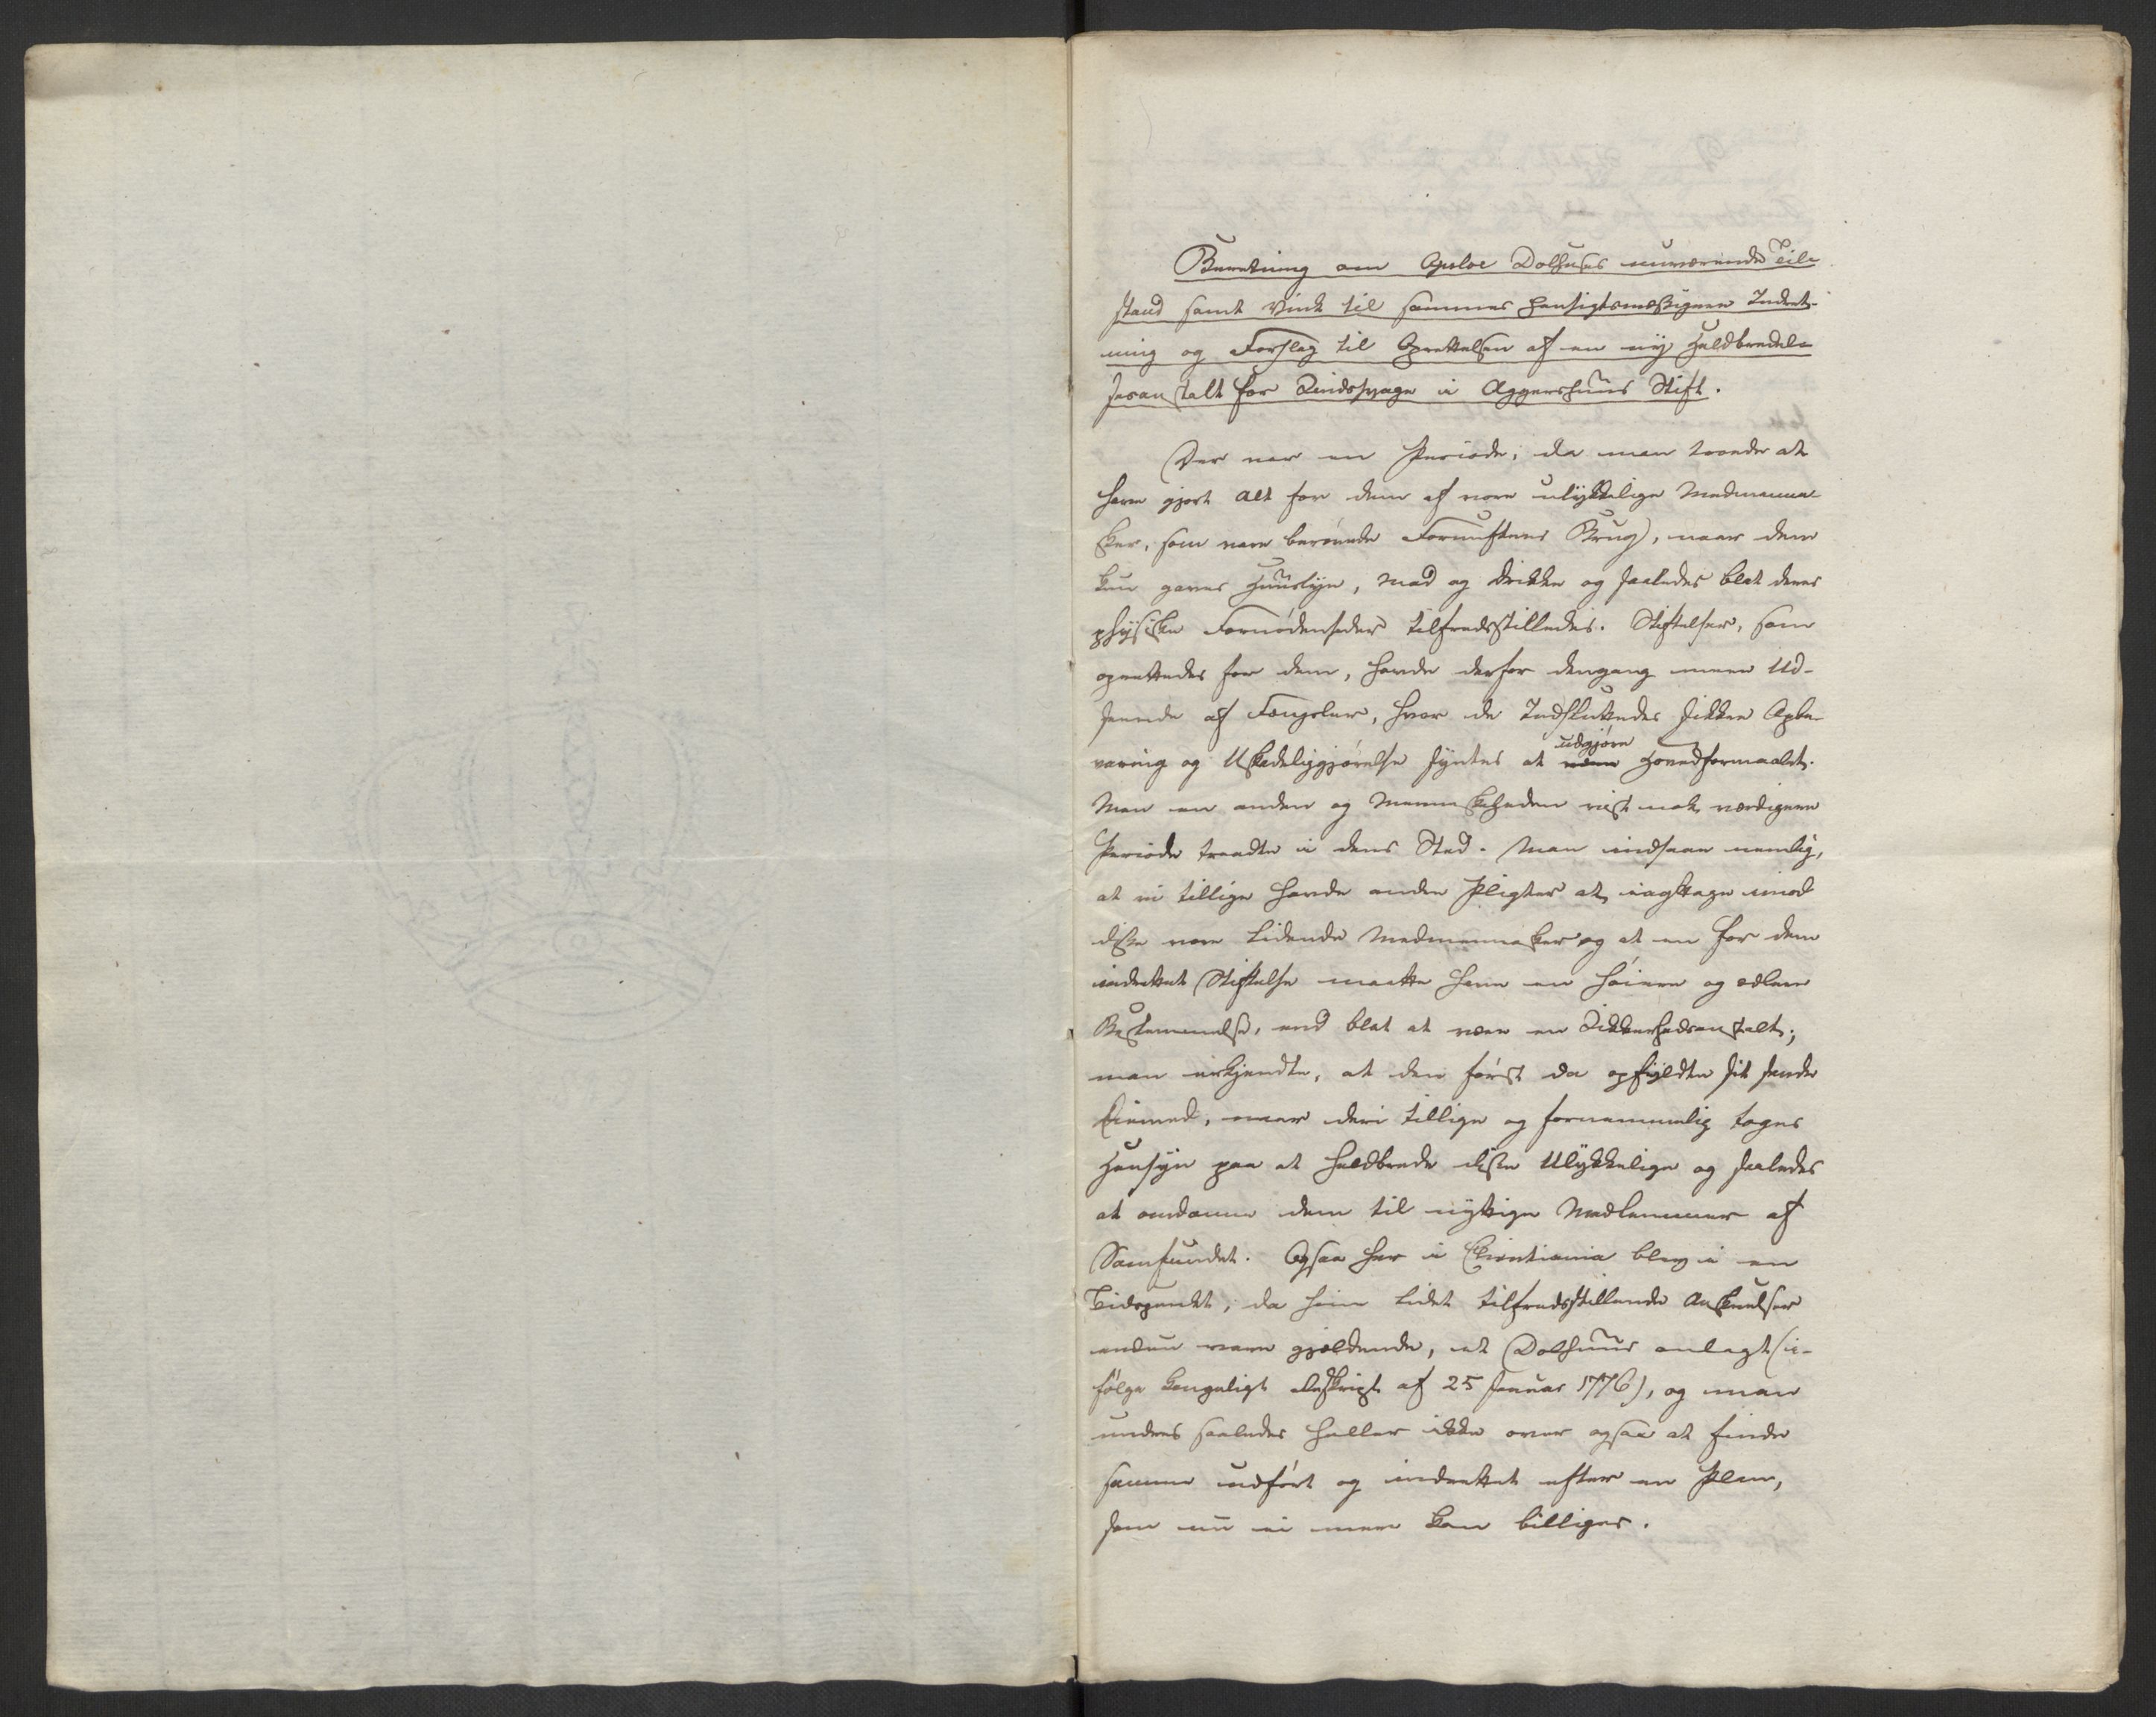 Beretning om Opsloe Dolhuses nuværende Til-
stand samt Vink til sammes hensigtsmæssigere Indret-
ning og Forslag til Oprettelsen af en ny Helbredel-
sesanstalt for Sindssvage i Aggershuus Stift.
Der var en Periode, da man troede at
have gjort Alt for dem af vore ulykkelige Medmenne-
sker, som vare berøvede Fornuftens Brug, naar dem
kun gaves Huuslye, Mad og Drikke og saaledes blot deres
physiske Fornødenheder tilfredsstilledes. Stiftelser, som
oprettedes for dem, havde derfor dengang mere Ud-
seende af Fængsler, hvor de Indsluttedes sikkre Opbe-
varing og Uskadeliggjørelse syntes at udgjøre Hovedformaalet.
Men en anden og Menneskeheden vist nok værdigere
Periode traadte i dens Sted. Man indsaae nemlig,
at vi tillige havde andre Pligter at iagttage imod
disse vore lidende Medmennesker og at en for dem
indrettet Stiftelse maatte have en høiere og ædlere
Bestemmelse, end blot at være en Sikkerhedsanstalt;
man erkjendte, at den først da opfyldte sit sande
Øiemed, naar deri tillige og fornemmelig toges
Hensyn paa at helbrede disse Ulykkelige og saaledes
at omdanne dem til nyttige Medlemmer af
Samfundet. Ogsaa her i Christiania blev i en
Tidspunkt, da hine lidet tilfredsstillende Anskuelser
endnu vare gjældende, et Dolhuus anlagt (i-
følge kongeligt Reskript af 25 Januar 1776), og man
undres saaledes heller ikke over ogsaa at finde
samme udført og indrettet efter en Plan,
som nu ei mere kan billiges.